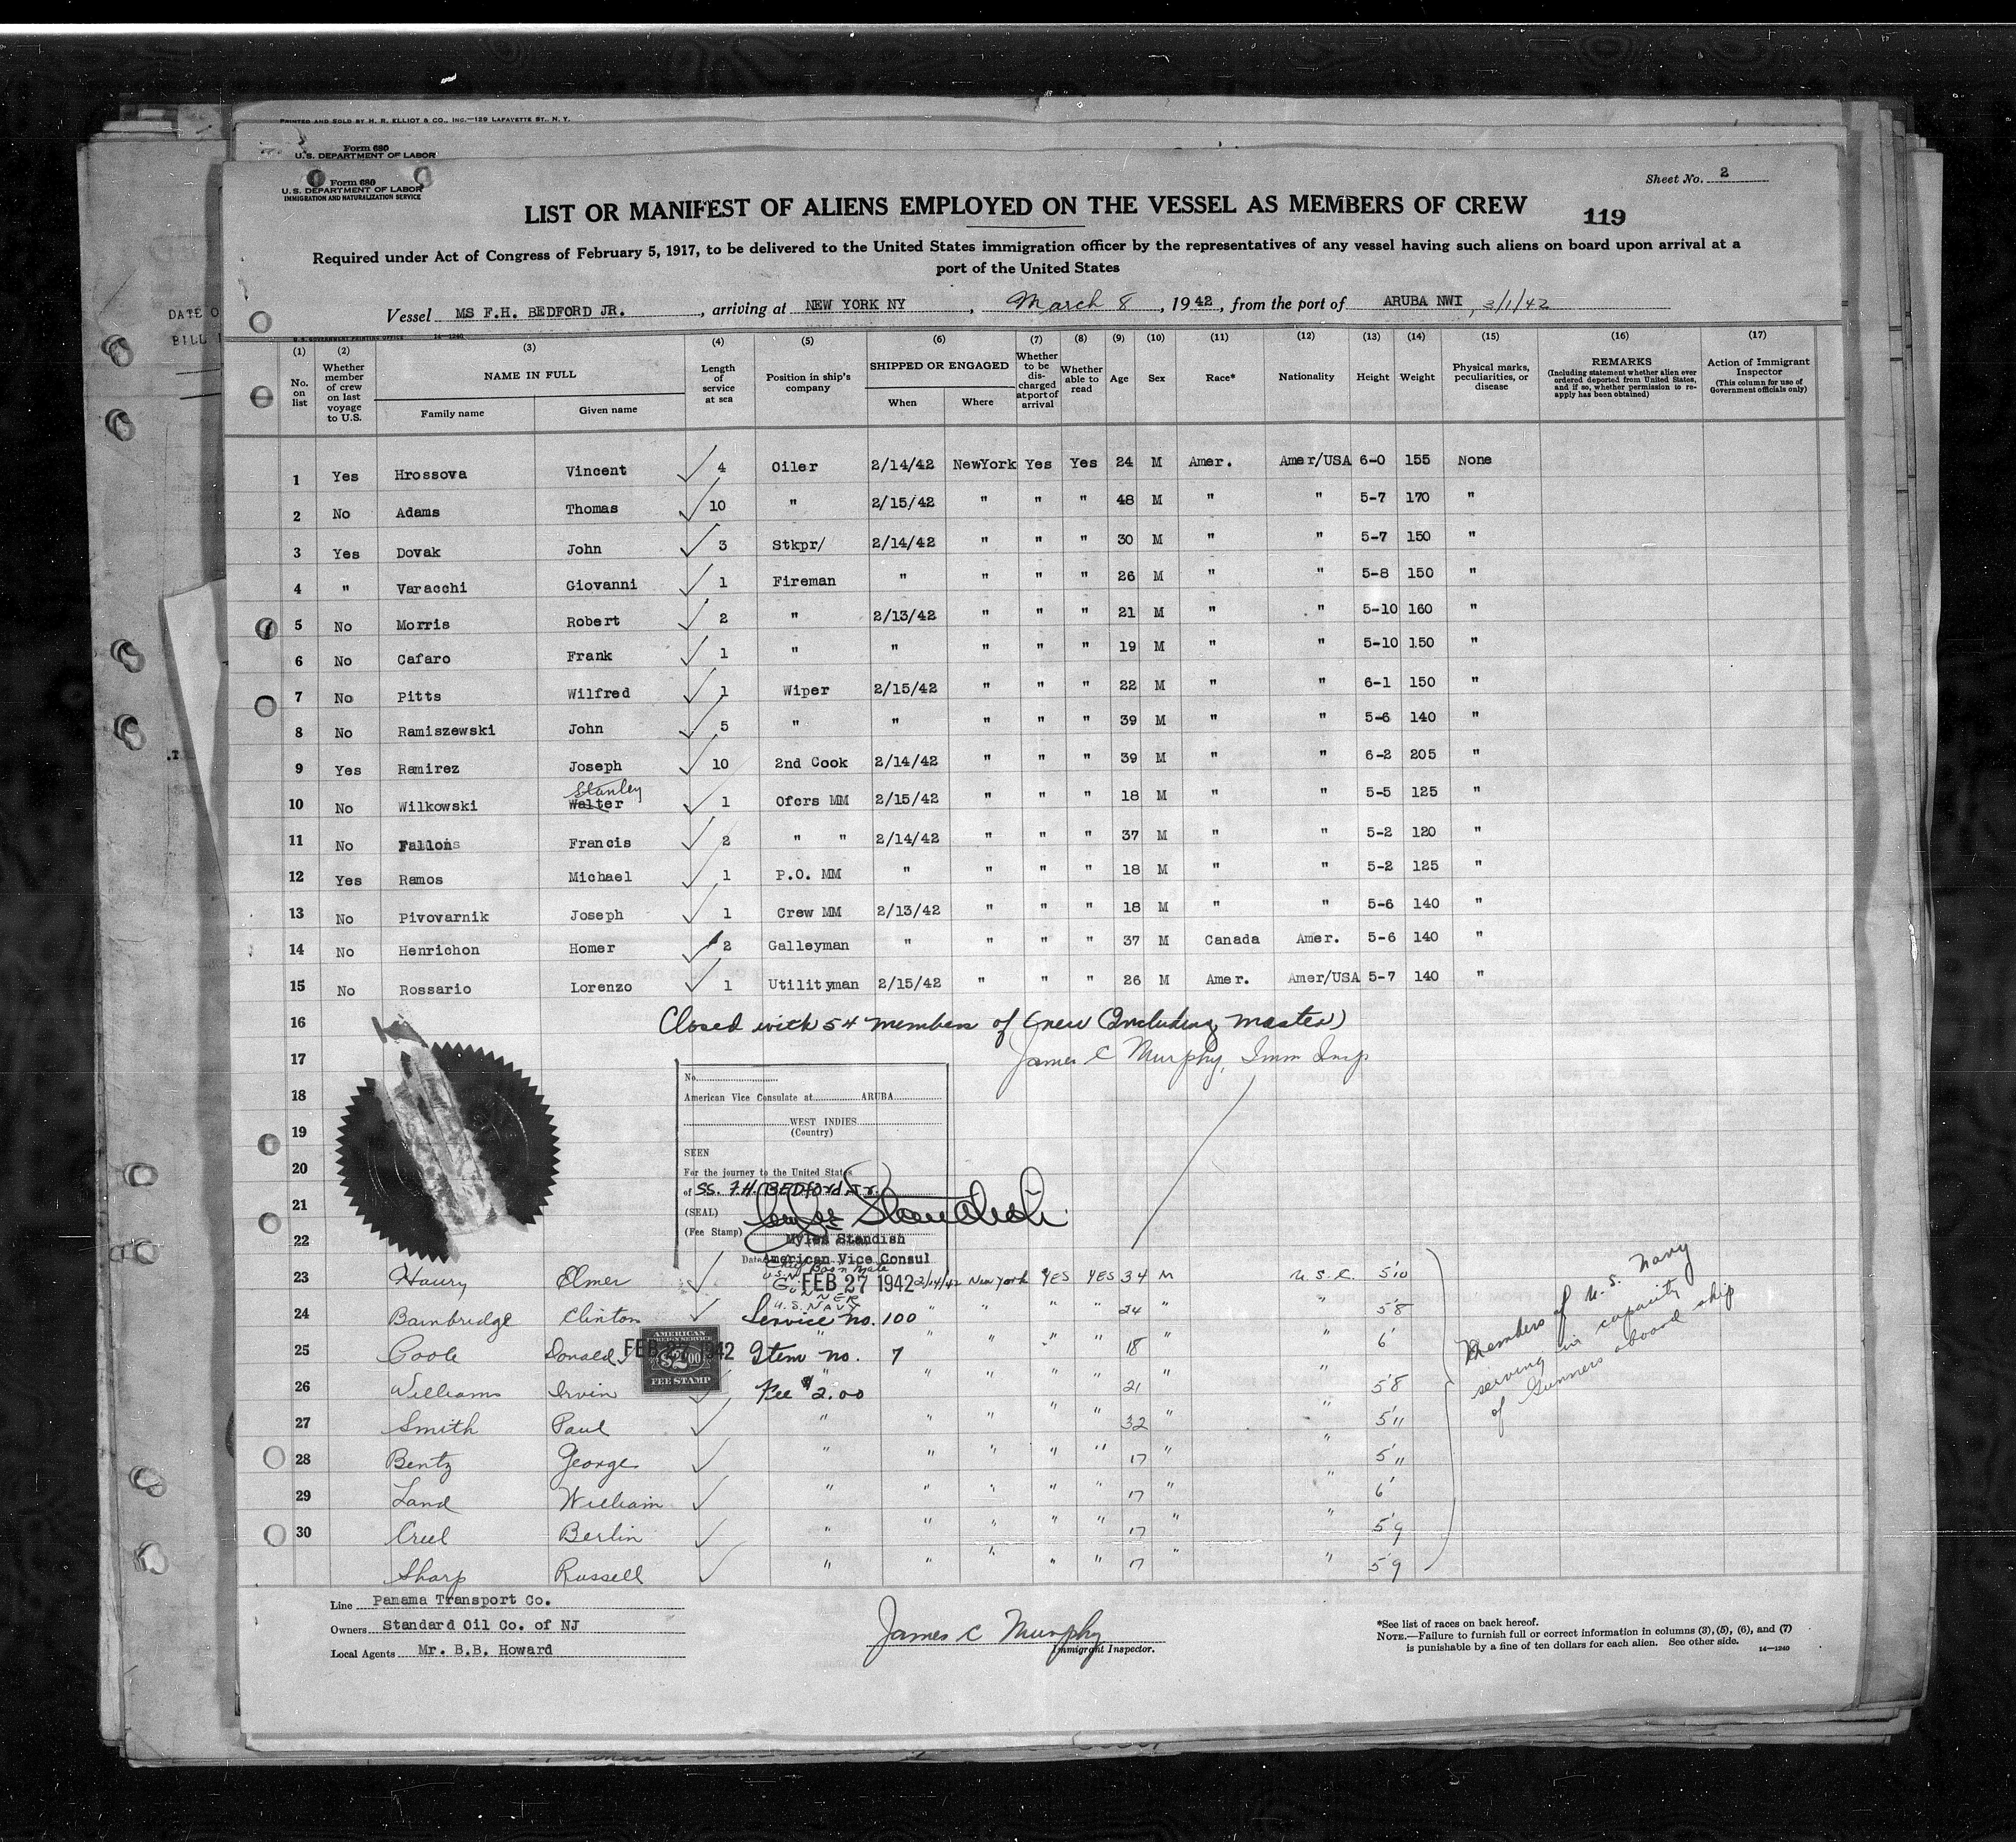 PRINTED AND SOLD BY H. R. ELLIOT & CO., INC.—129 LAFAYETTE ST., N. Y.
Form 680
U.S. DEPARTMENT OF LABOR
Form 680
U. S. DEPARTMENT OF LABOR
IMMIGRATION AND NATURALIZATION SERVICE
Sheet No. 2
LIST OR MANIFEST OF ALIENS EMPLOYED ON THE VESSEL AS MEMBERS OF CREW
119
Required under Act of Congress of February 5, 1917, to be delivered to the United States immigration officer by the representatives of any vessel having such aliens on board upon arrival at a
port of the United States
DATE O
BILL
Vessel MS F.H. BEDFORD JR. , arriving at NEW YORK NY , March 8 , 1942, from the port of ARUBA NWI, 3/1/42
U. S. GOVERNMENT PRINTING OFFICE 14—1240
(1) (2) (3) (4) (5) (6) (7) (8) (9) (10) (11) (12) (13) (14) (15) (16) (17)
No. on list Whether member of crew on last voyage to U.S. NAME IN FULL Family name Given name Length of service at sea Position in ship's company SHIPPED OR ENGAGED When Where Whether to be discharged at port of arrival Whether able to read Age Sex Race* Nationality Height Weight Physical marks, peculiarities, or disease REMARKS (Including statement whether alien ever ordered deported from United States, and if so, whether permission to reapply has been obtained) Action of Immigrant Inspector (This column for use of Government officials only)
1 Yes Hrossova Vincent ✓ 4 Oiler 2/14/42 NewYork Yes Yes 24 M Amer. Amer/USA 6-0 155 None
2 No Adams Thomas ✓ 10 " 2/15/42 " " " 48 M " " 5-7 170 "
3 Yes Dovak John ✓ 3 Stkpr/ 2/14/42 " " " 30 M " " 5-7 150 "
4 " Varacchi Giovanni ✓ 1 Fireman " " " " 26 M " " 5-8 150 "
5 No Morris Robert ✓ 2 " 2/13/42 " " " 21 M " " 5-10 160 "
6 No Cafaro Frank ✓ 1 " " " " " 19 M " " 5-10 150 "
7 No Pitts Wilfred ✓ 1 Wiper 2/15/42 " " " 22 M " " 6-1 150 "
8 No Ramiszewski John ✓ 5 " " " " " 39 M " " 5-6 140 "
9 Yes Ramirez Joseph ✓ 10 2nd Cook 2/14/42 " " " 39 M " " 6-2 205 "
Stanley
10 No Wilkowski Walter ✓ 1 Ofcrs MM 2/15/42 " " " 18 M " " 5-5 125 "
11 No Fallons Francis ✓ 2 " " 2/14/42 " " " 37 M " " 5-2 120 "
12 Yes Ramos Michael ✓ 1 P.O. MM " " " " 18 M " " 5-2 125 "
13 No Pivovarnik Joseph ✓ 1 Crew MM 2/13/42 " " " 18 M " " 5-6 140 "
14 No Henrichon Homer ✓ 2 Galleyman " " " " 37 M Canada Amer. 5-6 140 "
15 No Rossario Lorenzo ✓ 1 Utilityman 2/15/42 " " " 26 M Amer. Amer/USA 5-7 140 "
16 Closed with 54 members of Crew (Including Master)
17 James C Murphy, Imm Insp
No.
18 American Vice Consulate at ARUBA
19 WEST INDIES
(Country)
SEEN
20 For the journey to the United States
of SS. F.H. BEDford Jr.
21 (SEAL)
(Fee Stamp) Standish
22 Myles Standish
Date American Vice Consul
FEB 27 1942
23 Haury Elmer ✓ U.S.N. GUNNER U.S. NAVY 2/14/42 New York YES YES 34 M U.S.C. 5'10
24 Bambridge Clinton ✓ Service No. 100 " " " " 24 " " 5'8
25 Coole Donald ✓ FEB 27 1942 Item no. 7 " " " " " 18 " " 6'
AMERICAN FOREIGN SERVICE $2.00 FEE STAMP
26 Williams Irvin ✓ Fee $2.00 " " " " " 21 " " 5'8
27 Smith Paul ✓ " " " " " 32 " " 5'11
28 Bentz George ✓ " " " " " 17 " " 5'11
29 Land William ✓ " " " " " 17 " " 6'
30 Creel Berlin ✓ " " " " " 17 " " 5'9
Sharp Russell ✓ " " " " " 17 " " 5'9
Members of U.S. Navy
serving in capacity
of Gunners aboard ship
Line Panama Transport Co.
Owners Standard Oil Co. of NJ
Local Agents Mr. B.B. Howard
James C Murphy
Immigrant Inspector.
*See list of races on back hereof.
NOTE.—Failure to furnish full or correct information in columns (3), (5), (6), and (7)
is punishable by a fine of ten dollars for each alien. See other side. 14—1240